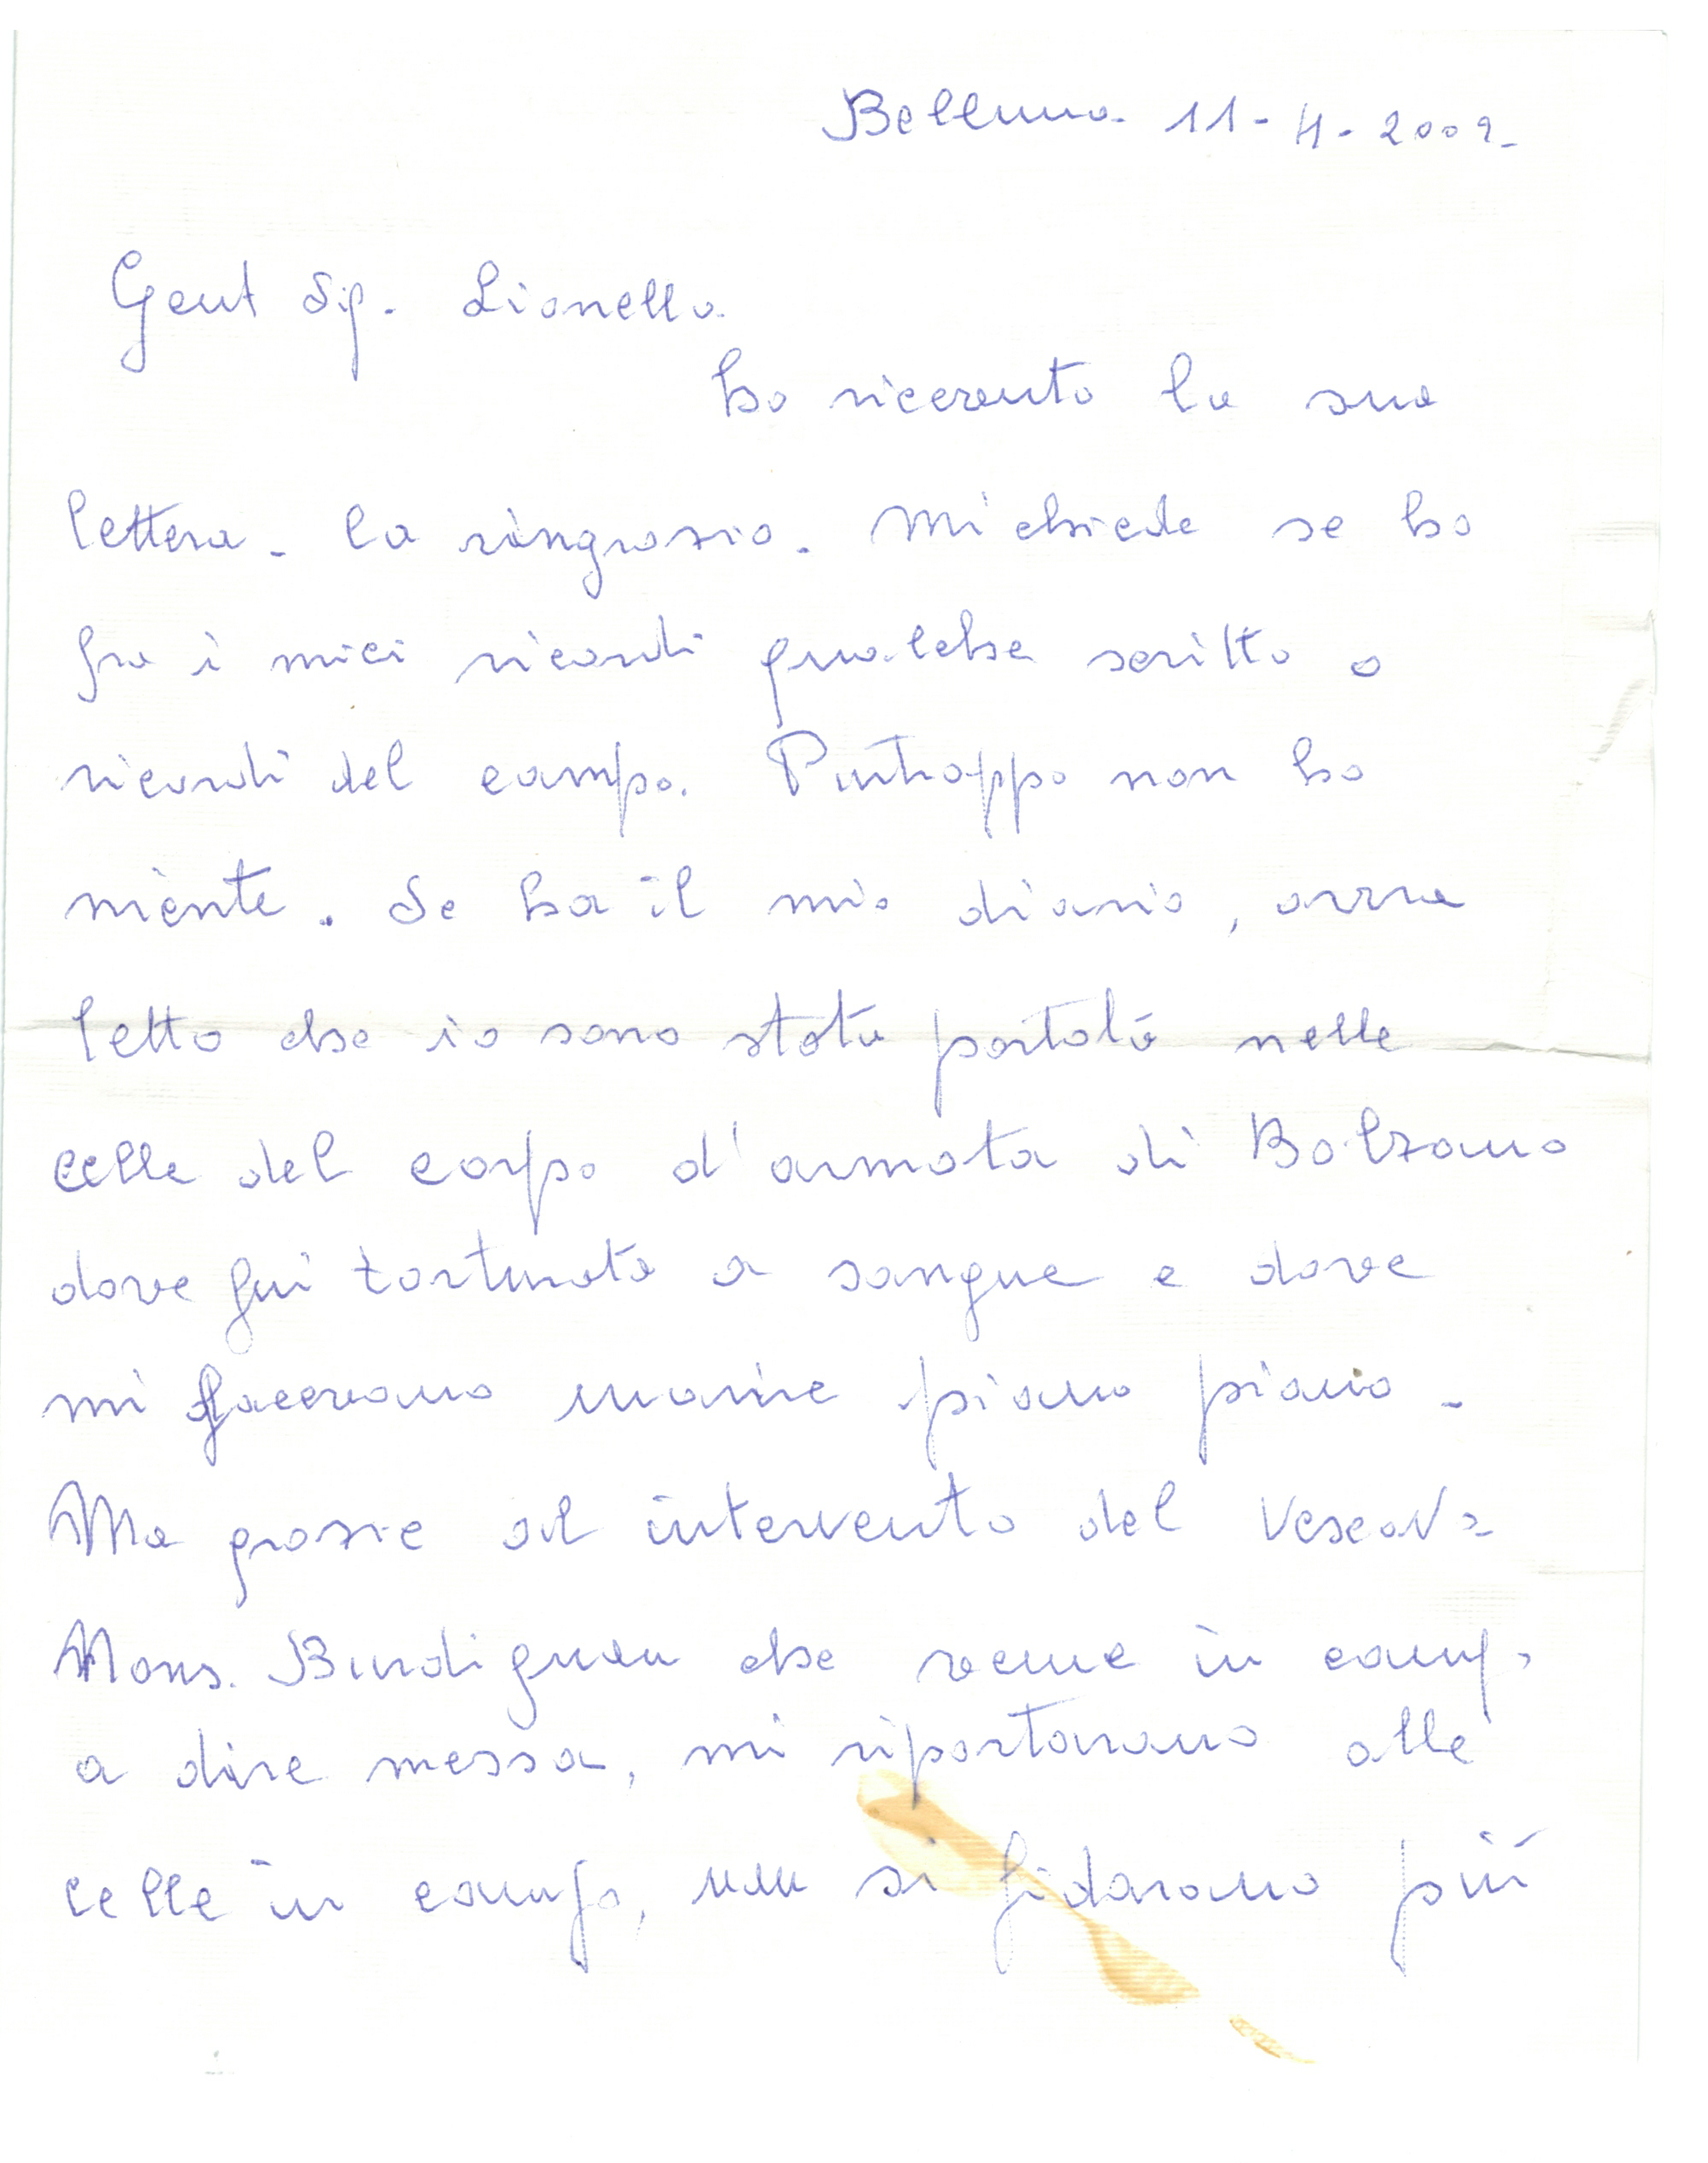 Belluno. 11-4-2009-
Gent Sig. Lionello.
ho ricevuto la sua
lettera - la ringrasio. Mi chiede se ho
fra i miei ricordi qualche scritto o
ricordi del campo. Purtroppo non ho
niente. Se ha il mio diario, avra
letto che io sono stata portata nelle
celle del corpo d'armata di Bolzano
dove fui torturata a sangue e dove
mi facevano morire piano piano -
Ma grasie al intervento del Vescovo
Mons. Bordignon che venne in campo
a dire messa, mi riportarono alle
celle in campo, non si fidarono più